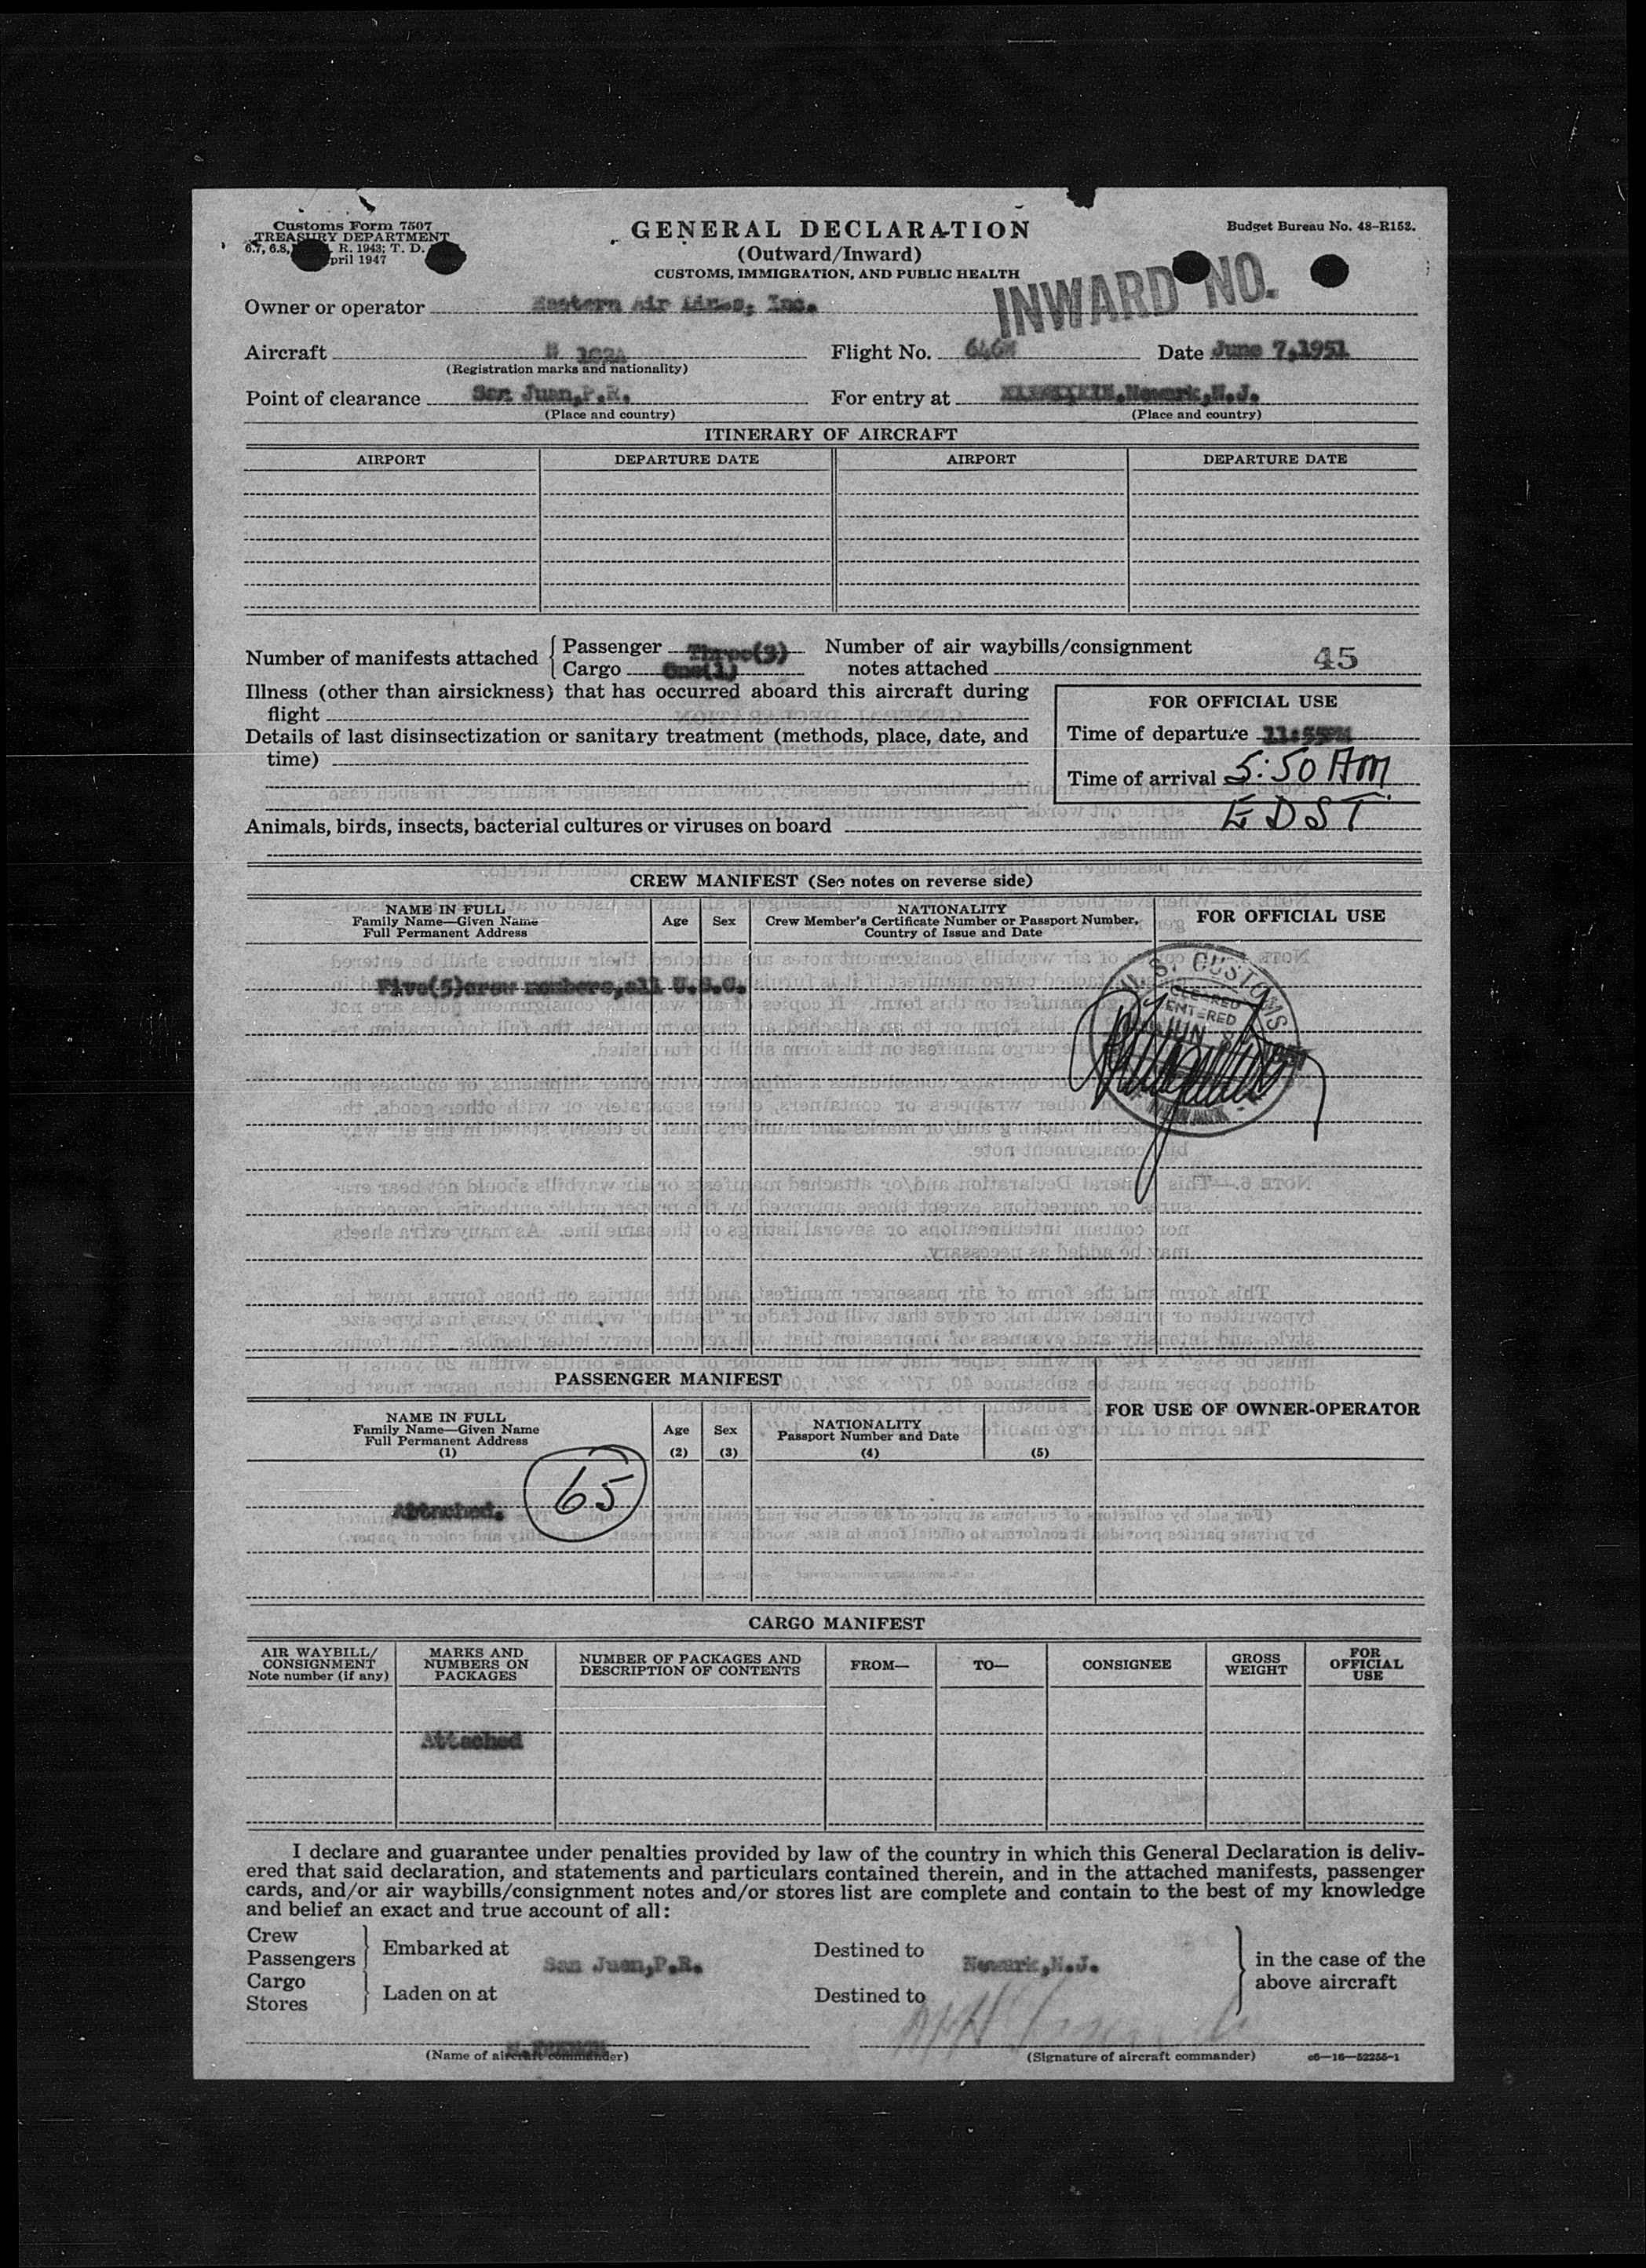 Customs Form 7507
TREASURY DEPARTMENT
6.7, 6.8, R. 1943; T. D.
pril 1947
GENERAL DECLARATION
(Outward/Inward)
CUSTOMS, IMMIGRATION, AND PUBLIC HEALTH
Budget Bureau No. 48-R152.
INWARD NO.
Owner or operator Eastern Air Lines, Inc.
Aircraft N Flight No. Date June 7,1951
(Registration marks and nationality)
Point of clearance San Juan,P.R. For entry at Newark,N.J.
(Place and country) (Place and country)
ITINERARY OF AIRCRAFT
AIRPORT DEPARTURE DATE AIRPORT DEPARTURE DATE
Number of manifests attached { Passenger Three(3) Number of air waybills/consignment
Cargo One(1) notes attached 45
Illness (other than airsickness) that has occurred aboard this aircraft during
flight
Details of last disinsectization or sanitary treatment (methods, place, date, and
time)
FOR OFFICIAL USE
Time of departure 11:55PM
Time of arrival 5:50 AM
EDST
Animals, birds, insects, bacterial cultures or viruses on board
CREW MANIFEST (See notes on reverse side)
NAME IN FULL
Family Name—Given Name
Full Permanent Address
Age Sex
NATIONALITY
Crew Member's Certificate Number or Passport Number,
Country of Issue and Date
FOR OFFICIAL USE
Five(5)crew members,all U.S.C.
U. S. CUSTOMS
CLEARED
ENTERED
JUN 8 1951
PASSENGER MANIFEST
NAME IN FULL
Family Name—Given Name
Full Permanent Address
(1)
Age
(2)
Sex
(3)
NATIONALITY
Passport Number and Date
(4)
(5)
FOR USE OF OWNER-OPERATOR
65
Attached.
CARGO MANIFEST
AIR WAYBILL/
CONSIGNMENT
Note number (if any)
MARKS AND
NUMBERS ON
PACKAGES
NUMBER OF PACKAGES AND
DESCRIPTION OF CONTENTS
FROM—
TO—
CONSIGNEE
GROSS
WEIGHT
FOR
OFFICIAL
USE
Attached
I declare and guarantee under penalties provided by law of the country in which this General Declaration is deliv-
ered that said declaration, and statements and particulars contained therein, and in the attached manifests, passenger
cards, and/or air waybills/consignment notes and/or stores list are complete and contain to the best of my knowledge
and belief an exact and true account of all:
Crew
Passengers
Cargo
Stores
Embarked at San Juan,P.R. Destined to Newark,N.J.
Laden on at Destined to
in the case of the
above aircraft
(Name of aircraft commander) (Signature of aircraft commander) c6—16—52255-1